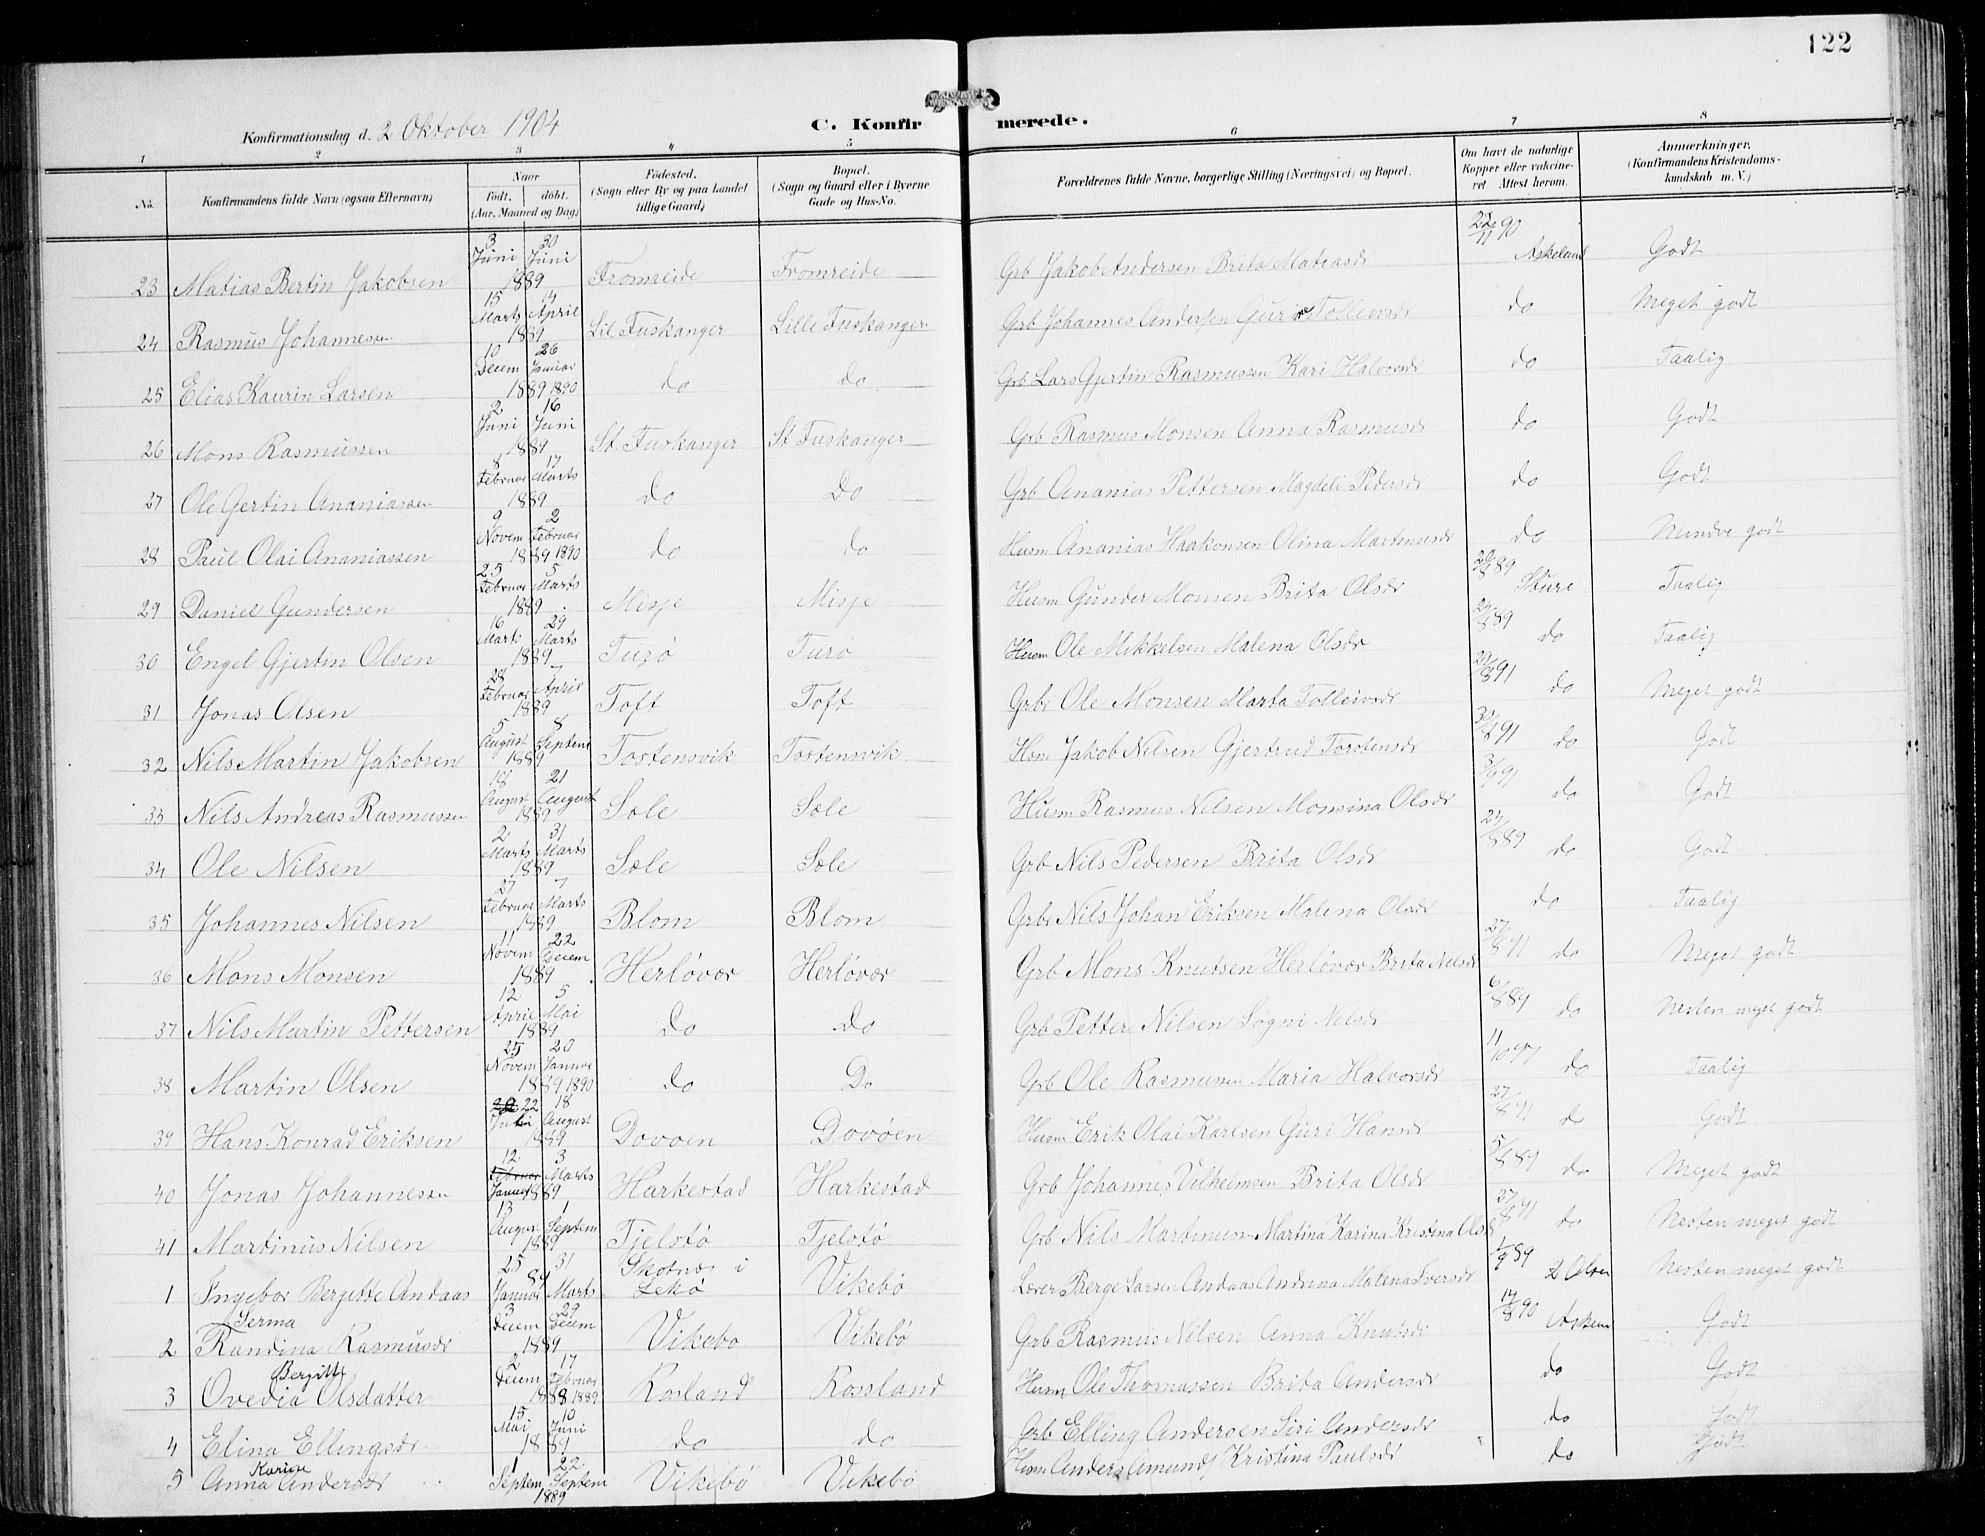 122
Konfirmationsdag d. 2 Oktober 1904
C. Konfirmerede.
1 2 3 4 5 6 7 8
No. Konfirmandens fulde Navn (ogsaa Efternavn) Naar Født. døbt. (Aar, Maaned og Dag) Fødested. (Sogn eller By og paa Landet tillige Gaard) Bopæl. (Sogn og Gaard eller i Byerne Gade og Hus-No. Forældrenes fulde Navne, borgerlige Stilling (Næringsvei) og Bopæl. Om havt de naturlige Kopper eller vakcineret. Attest herom. Anmærkninger. (Konfirmandens Kristendomskundskab m. V.)
23 Matias Bertin Jakobsen 3 Juni 30 Juni 1889 Fromreide Fromreide Grb Jakob Andersen Brita Matiasdr 22/11 90 Askeland Godt
24 Rasmus Johannessen 15 Marts 14 April 1889 Lil Fuskanger Lille Fuskanger Grb Johannes Andersen Guri Tolleivsdr do Meget godt
25 Elias Kaurin Larsen 10 Decem 26 Januar 1889 1890 do do Grb Lars Gjertin Rasmussen Kari Halvorsdr do Taalig
26 Mons Rasmussen 2 Juni 16 Juni 1889 St Fuskanger St Fuskanger Grb Rasmus Monsen Anna Rasmusdr do Godt
27 Ole Gertin Ananiassen 8 Februar 17 Marts 1889 do Do Grb Ananias Pettersen Magdeli Pedersdr do Godt
28 Paul Olai Ananiassen 9 Novem 2 Februar 1889 1890 do do Husm Ananias Haakonsen Olina Martinusdr do Mindre godt
29 Daniel Gundersen 25 Februar 5 Marts 1889 Misje Misje Husm Gunder Monsen Brita Olsdr /8 89 Sture Taalig
30 Engel Gjertin Olsen 16 Marts 29 Marts 1889 Turø Turø Husm Ole Mikkelsen Malena Olsdr /8 89 do Taalig
31 Jonas Olsen 28 Februar 7 April 1889 Toft Toft Grbr Ole Monsen Marta Tolleivsdr /8 91 do Meget godt
32 Nils Martin Jakobsen 5 August 8 Septem 1889 Tostensvik Tostensvik Hsm Jakob Nilsen Gjertrud Torstensdr 31/8 91 do Godt
33 Nils Andreas Rasmussen 18 August 21 August 1889 Sole Sole Husm Rasmus Nilsen Monsina Olsdr 3/9 91 do Godt
34 Ole Nilsen 2 Marts 31 Marts 1889 Sole Sole Grb Nils Pedersen Brita Olsdr /8 89 do Godt
35 Johannes Nilsen 27 Februar 7 Marts 1889 Blom Blom Grbr Nils Johan Eriksen Malena Olsdr do Taalig
36 Mons Monsen 11 Novem 22 Decem 1889 Herløvær Herløvær Grb Mons Knutsen Herløvær Brita Nilsdr 27/8 91 do Meget godt
37 Nils Martin Pettersen 12 April 5 Mai 1889 do Do Grb Petter Nilsen Sogni Nilsdr 6/8 89 do Nesten meget godt
38 Martin Olsen 25 Novem 20 Januar 1889 1890 do Do Grb Ole Rasmussen Maria Halvorsdr 11/10 97 do Taalig
39 Hans Konrad Eriksen 20 22 Juli 18 August 1889 Dovøen Dovøen Husm Erik Olai Karlsen Guri Hansdr 27/8 91 do Godt
40 Jonas Johannessen 12 Februar Januar 3 Marts 1889 Harkestad Harkestad Grb Johannes Vilhelmsen Brita Olsdr 5/8 89 do Meget godt
41 Martinus Nilsen 13 August 1 Septem 1889 Tjelstø Tjelstø Grb Nils Martinusn Martina Karina Kristina Olsdr 27/8 91 do Nesten meget godt
1 Ingebor Bergitte Andaas 25 Januar 31 Marts 89 Skotnes i Lekø Vikebø Lærer Berge Larsen Andaas Andrina Malena Iversdr 1/9 89 Olsen Nesten meget godt
2 Randina Serma Rasmusdr 3 Decem 29 Decem 1889 Vikebo Vikebø Grb Rasmus Nilsen Anna Knutsdr 17/8 90 Godt
3 Ovedia Bergitte Olsdatter 2 Decem 17 Februar 1888 1889 Rosland Rossland Husm Ole Thomassen Brita Andersdr do Godt
4 Elina Ellingsdr 15 Mai 10 Juni 1889 do do Grb Elling Andersen Siri Andersdr do Godt
5 Anna Karine Andersdr 1 Septem 22 Septem 1889 Vikebø Vikebø Husm Anders Amunds Kristina Paulsdr do Godt